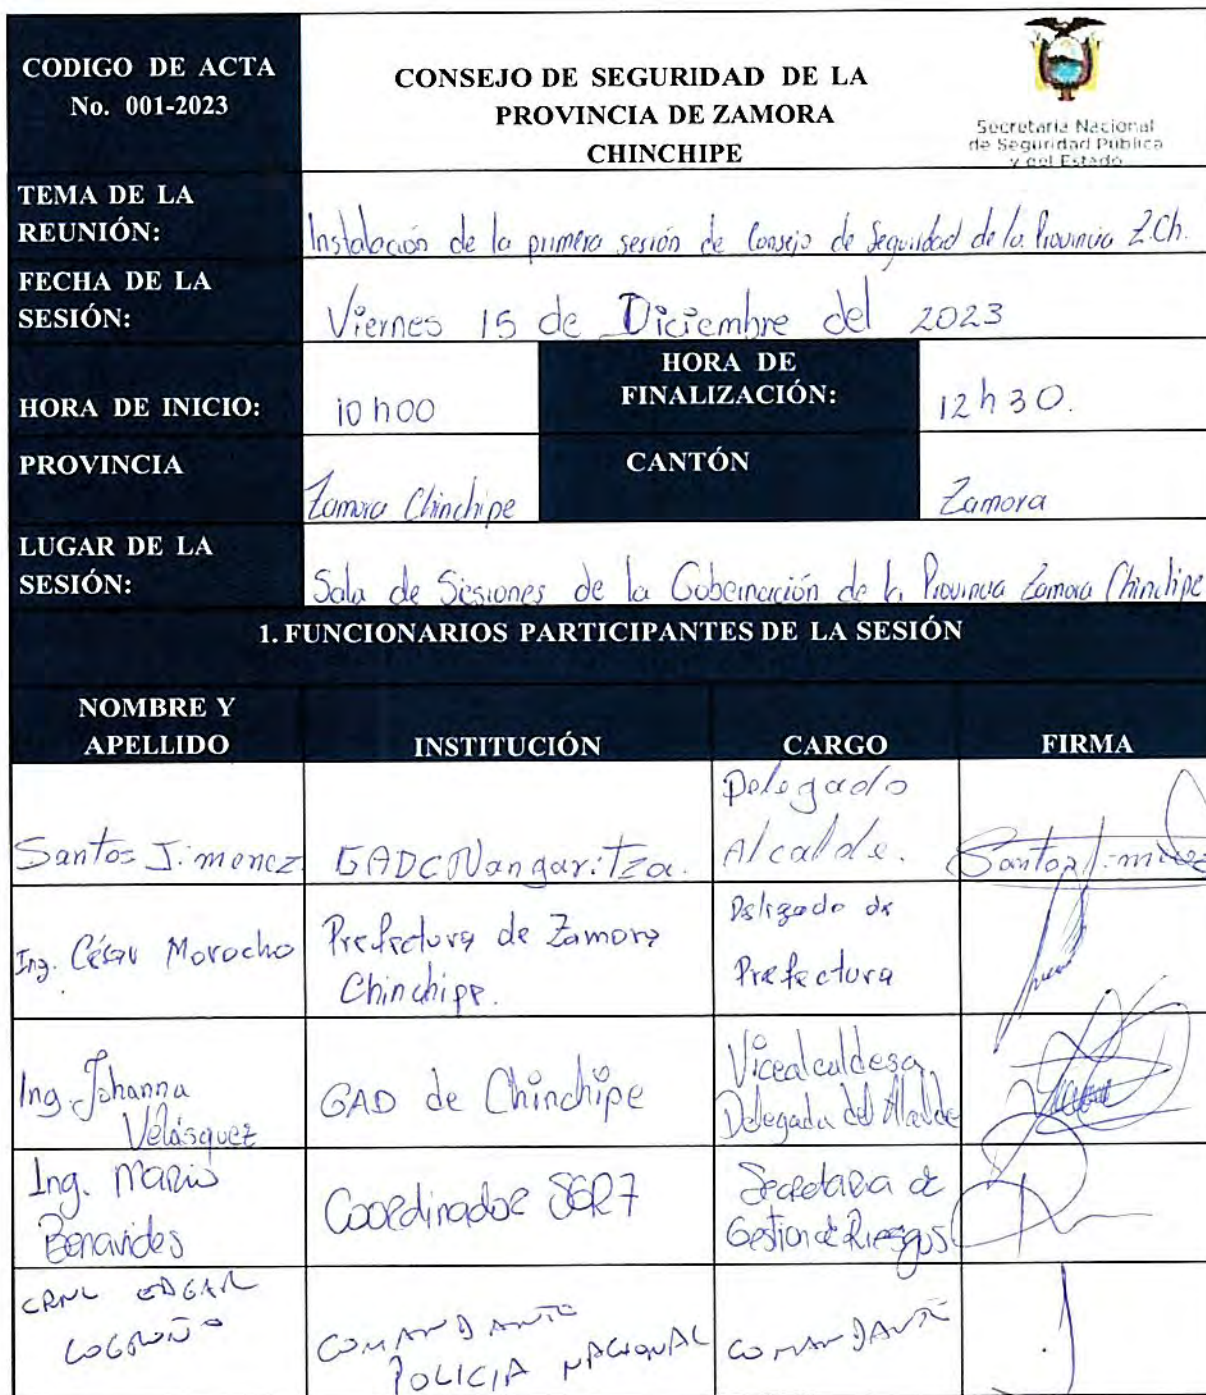 CODIGO DE ACTA
No. 001-2023
CONSEJO DE SEGURIDAD DE LA
PROVINCIA DE ZAMORA
CHINCHIPE
Secretaría Nacional
de Seguridad Pública
y del Estado
TEMA DE LA
REUNIÓN:
Instalación de la primera sesión de Consejo de Seguridad de la Provincia Z.Ch.
FECHA DE LA
SESIÓN:
Viernes 15 de Diciembre del 2023
HORA DE INICIO:
10 h00
HORA DE
FINALIZACIÓN:
12 h 30.
PROVINCIA
Zamora Chinchipe
CANTÓN
Zamora
LUGAR DE LA
SESIÓN:
Sala de Sesiones de la Gobernación de la Provincia Zamora Chinchipe
1. FUNCIONARIOS PARTICIPANTES DE LA SESIÓN
NOMBRE Y
APELLIDO
INSTITUCIÓN
CARGO
FIRMA
Santos Jimenez
GADC Nangaritza.
Delegado
Alcalde.
Santos Jimenez
Ing. César Morocho
Prefectura de Zamora
Chinchipe.
Delegado de
Prefectura
Ing. Johanna
Velásquez
GAD de Chinchipe
Vicealcaldesa
Delegada del Alcalde
Ing. Mario
Benavides
Coordinador SGR7
Secretaria de
Gestion de Riesgos
CRNL EDGAR
LOGROÑO
COMANDANTE
POLICIA NACIONAL
COMANDANTE